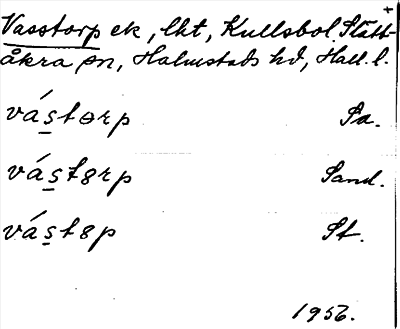 Vasstorp ek, lht, Kullsbol. Slätt-
åkra sn, Halmstads hd, Hall. l.
vás̲tɵrp Sa.
vás̲t8rp Sand.
vás̲t8p St.
1956.